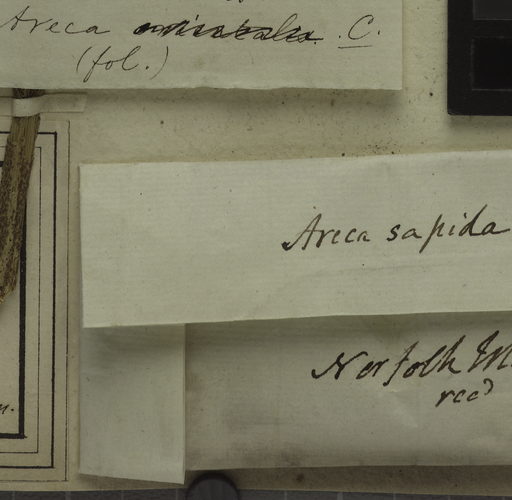 Areca C.
(fol.)
Areca sapida
Norfolk
recd